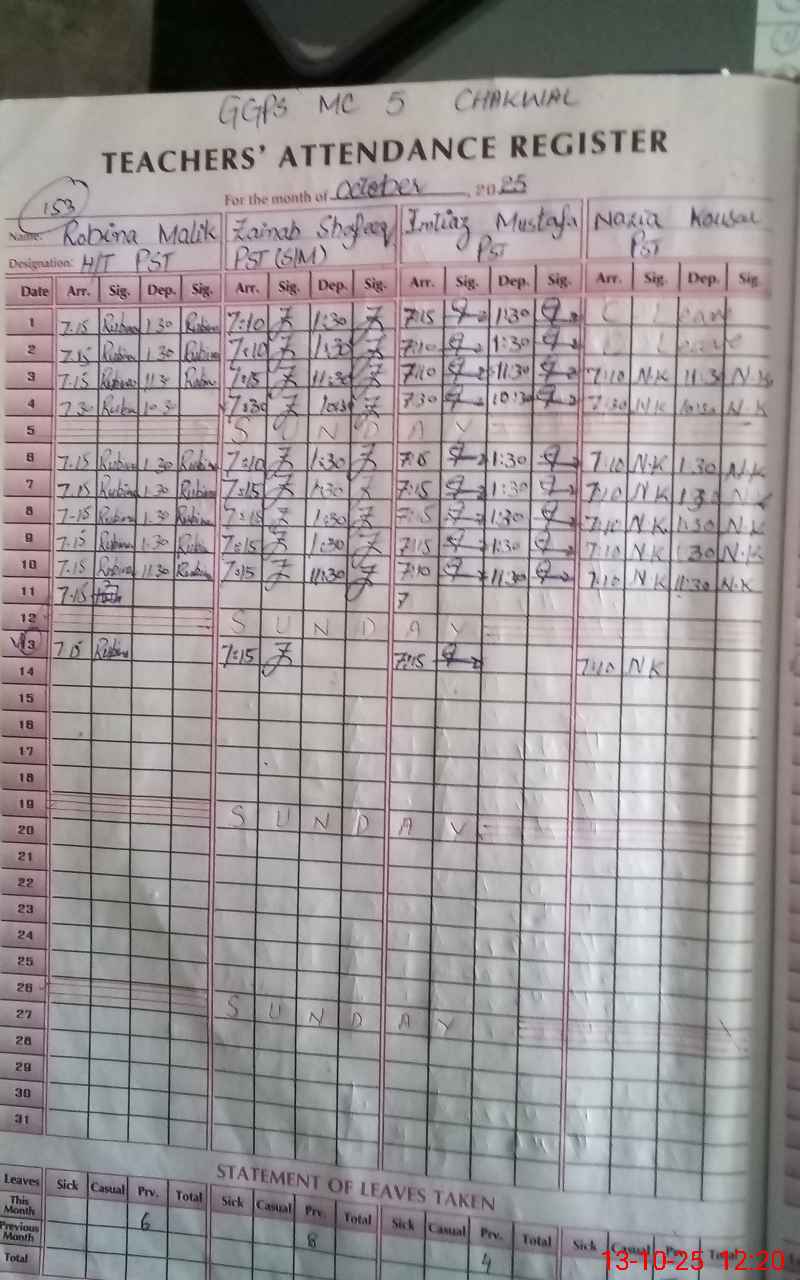 GGPS MC 5 CHAKWAL
TEACHERS' ATTENDANCE REGISTER
For the month of October, 2025
153
Name: Robina Malik Zainab Shafaq Imtiaz Mustafa Nazia Kousar
Designation: H/T PST PST (SIM) PST PST
Date Arr. Sig. Dep. Sig. Arr. Sig. Dep. Sig. Arr. Sig. Dep. Sig. Arr. Sig. Dep. Sig
1 7.15 Rubina 1.30 Rubina 7:10 Z 1:30 Z 7:15 1:30 C Leave
2 7.15 Rubina 1.30 Rubina 7:10 Z 1:30 Z 7:10 1:30 Leave
3 7.15 Rubina 11.30 Rubina 7:15 Z 11:30 Z 7:10 11:30 7:10 N.K 11.30 N.K
4 7.30 Rubina 10.30 7:30 Z 10:30 Z 7:30 10:30 7:30 N.K 10:30 N.K
5 SUNDAY
6 7.15 Rubina 1.30 Rubina 7:10 Z 1:30 Z 1:30 7:10 N.K 1.30 N.K
7 7.15 Rubina 1.30 Rubina 7:15 Z 1:30 Z 7:15 1:30 7:10 N.K 1.30 N.K
8 7-15 Rubina 1.30 Rubina 7:15 Z 1:30 Z 7:15 1:30 7:10 N.K 1:30 N.K
9 7.15 Rubina 1.30 Rubina 7:15 Z 1:30 Z 7:15 1:30 7:10 N.K 1.30 N.K
10 7.15 Rubina 11.30 Rubina 7:15 Z 11:30 Z 7:10 11:30 7:10 N.K 11:30 N.K
11 7.15 7
12 SUNDAY
13 7.15 Rubina 7:15 Z 7:15 7:10 N.K
14
15
16
17
18
19 SUNDAY
20
21
22
23
24
25
26 SUNDAY
27
28
29
30
31
STATEMENT OF LEAVES TAKEN
Leaves Sick Casual Prv. Total Sick Casual Prv. Total Sick Casual Prv. Total Sick Casual Prv. Total
This Month 6 8 4
Previous Month
Total
13-10-25 12:20